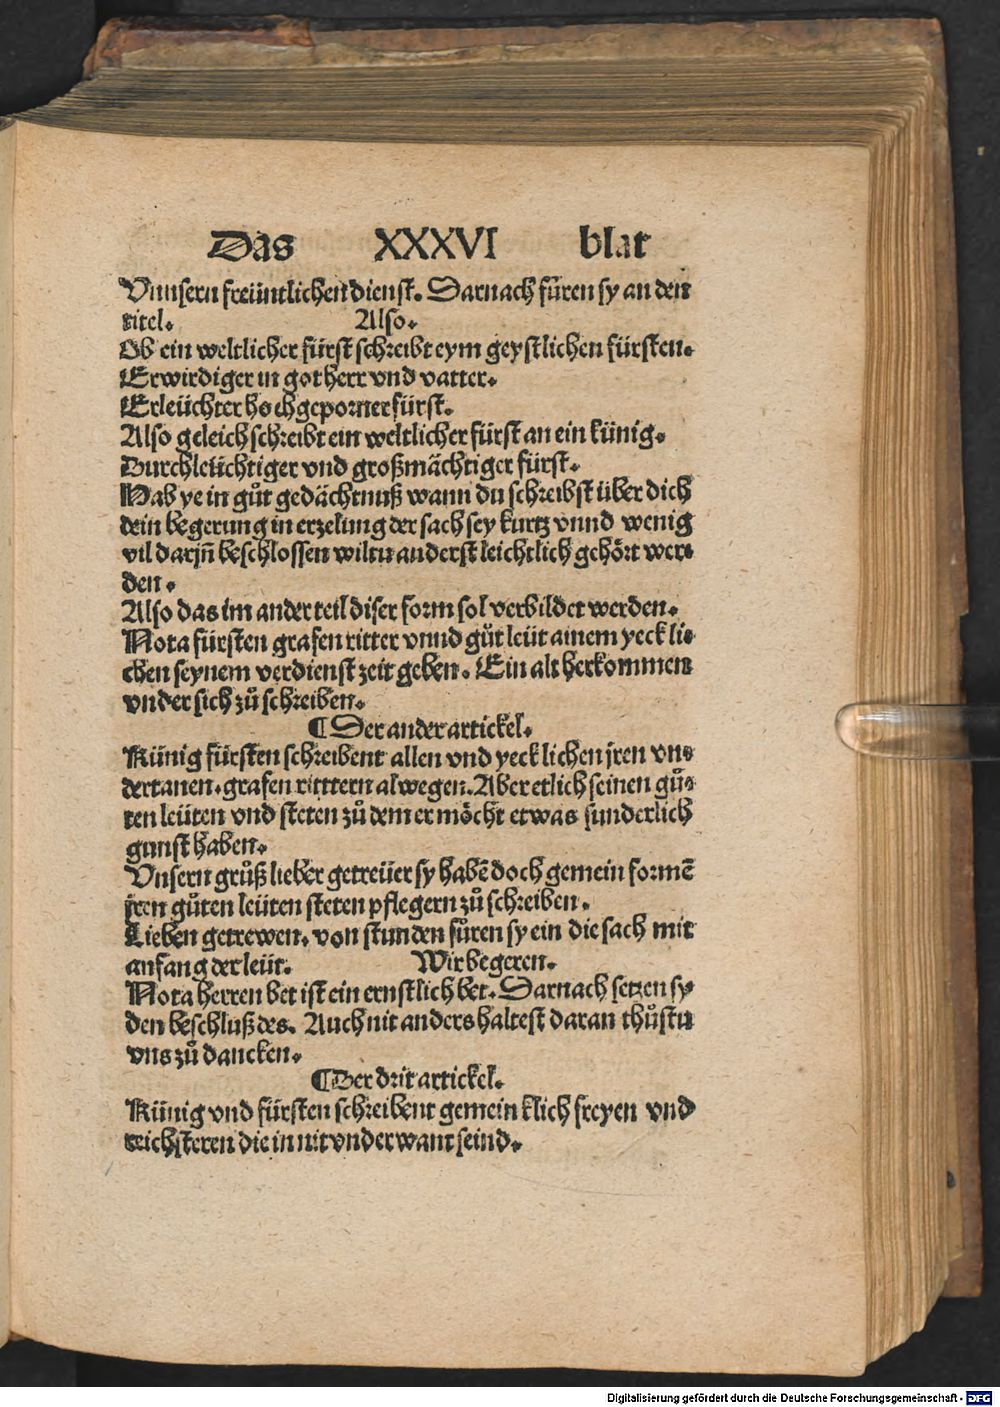 Das XXXVI blat
Vnnsern freüntlichen dienst. Darnach fůren sy an den
titel. Also.
Ob ein weltlicher fürst schreibt eym geystlichen fürsten.
Erwirdiger in got herr vnd vatter.
Erleüchter hochgeporner fürst.
Also geleich schreibt ein weltlicher fürst an ein künig.
Durchleüchtiger vnd großmächtiger fürst.
Hab ye in gůt gedächtnuß wann du schreibst über dich
dein begerung in erzelung der sach sey kurtz vnnd wenig
vil darjñ beschlossen wiltu anderst leichtlich gehört wer⸗
den.
Also das im ander teil diser form sol verbildet werden.
Nota fürsten grafen ritter vnnd gůt leüt ainem yeck li⸗
chen seynem verdienst zeit geben. Ein alt herkommen
vnder sich zů schreiben.
¶ Der ander artickel.
Künig fürsten schreibent allen vnd yecklichen jren vn⸗
dertanen. grafen ritttern alwegen. Aber etlich seinen gů⸗
ten leüten vnd steten zů dem er möcht etwas sunderlich
gunst haben.
Vnsern grůß lieber getreüer sy habē doch gemein formē
jren gůten leüten steten pflegern zů schreiben.
Lieben getrewen. von stunden fůren sy ein die sach mit
anfang der leüt. Wir begeren.
Nota herren bet ist ein ernstlich bet. Darnach setzen sy
den beschluß des. Auch nit anders haltest daran thůstu
vns zů dancken.
¶ Der drit artickel.
Künig vnd fürsten schreibent gemeinklich freyen vnd
reichsteren die in nit vnderwant seind.
Digitalisierung gefördert durch die Deutsche Forschungsgemeinschaft - DFG